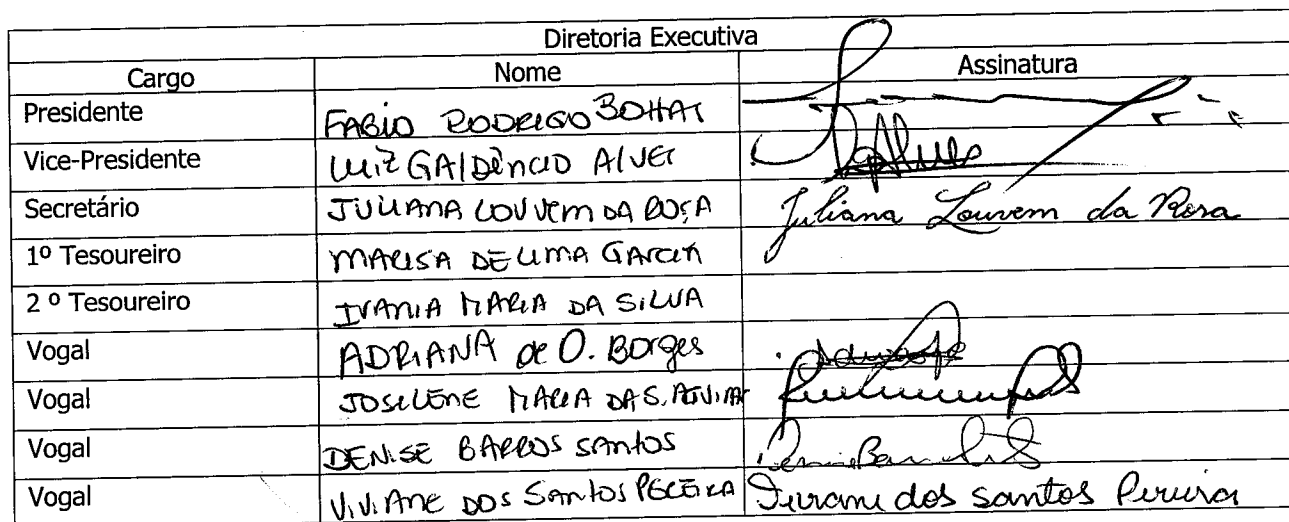 Diretoria Executiva
Cargo Nome Assinatura
Presidente FABIO RODRIGO BOHAT
Vice-Presidente LUIZ GALDÊNCIO ALVES
Secretário JULIANA LOUVEM DA ROSA Juliana Louvem da Rosa
1º Tesoureiro MARISA DE LIMA GARCIA
2 º Tesoureiro IVANIA MARIA DA SILVA
Vogal ADRIANA de O. BORGES
Vogal JOSILENE MARIA DA S.
Vogal DENISE BARROS SANTOS
Vogal VIVIANE DOS SANTOS PEREIRA dos santos Pereira